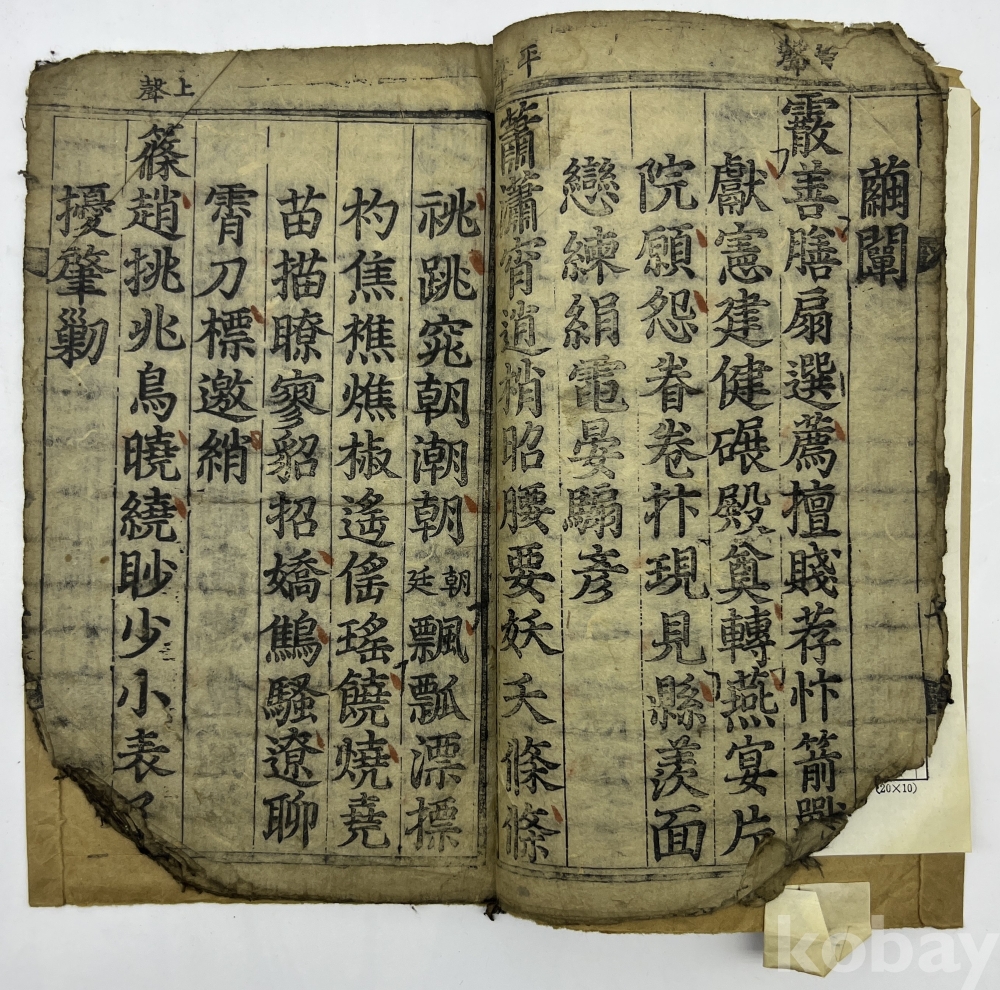 聲
繭闡
霰善膳扇選薦擅賤荐忭箭戰
獻憲建健碾殿奠轉燕宴片
院願怨眷卷抃現見縣羨面
戀練絹電晏騸彥
平
蕭瀟宵逍梢昭腰要妖夭條絛
祧跳窕朝潮朝朝廷飄瓢漂摽
杓焦樵燋椒遙傜瑤饒燒堯
苗描瞭寥貂招嬌鷦騷遼聊
霄刀標邀綃
上聲
篠趙挑兆鳥曉繞眇少小表了
擾肇勦
(20×10)
kobay